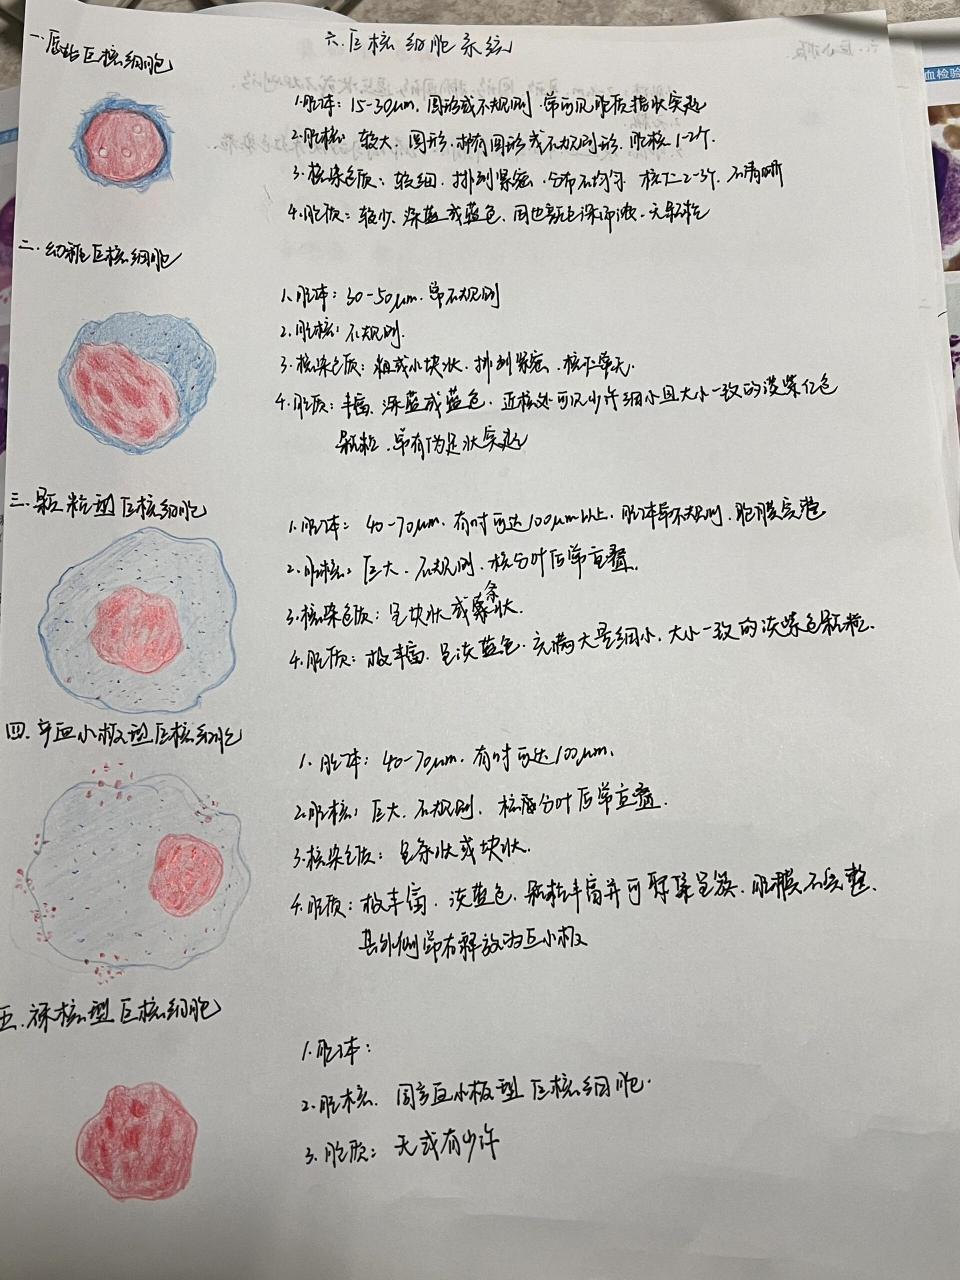 六.巨核细胞系统
一.原始巨核细胞
1.胞体:15-30μm.圆形或不规则.常可见胞质指状突起
2.胞核:较大.圆形.稍有圆形或不规则形.胞核1-2个.
3.核染色质:较细.排列紧密.分布不均匀.核仁2-3个.不清晰
4.胞质:较少.深蓝或蓝色.周边深而浓.无颗粒
二.幼稚巨核细胞
1.胞体:30-50μm.常不规则
2.胞核:不规则.
3.核染色质:粗或小块状.排列紧密.核仁常无.
4.胞质:丰富.深蓝或蓝色.近核处可见少许细小且大小一致的淡紫红色
颗粒.常有伪足状突起
三.颗粒型巨核细胞
1.胞体:40-70μm.有时可达100μm以上.胞体常不规则.胞膜完整
2.胞核:巨大.不规则.核分叶后常重叠.
3.核染色质:呈块状或条状.
4.胞质:极丰富.呈淡蓝色.充满大量细小.大小一致的淡紫色颗粒.
四.产血小板型巨核细胞
1.胞体:40-70μm.有时可达100μm.
2.胞核:巨大.不规则.核分叶后常重叠.
3.核染色质:呈条状或块状.
4.胞质:极丰富.淡蓝色.颗粒丰富并可聚集呈簇.胞膜不完整.
其外侧常有释放的血小板
五.裸核型巨核细胞
1.胞体:
2.胞核.同产血小板型巨核细胞.
3.胞质:无或有少许